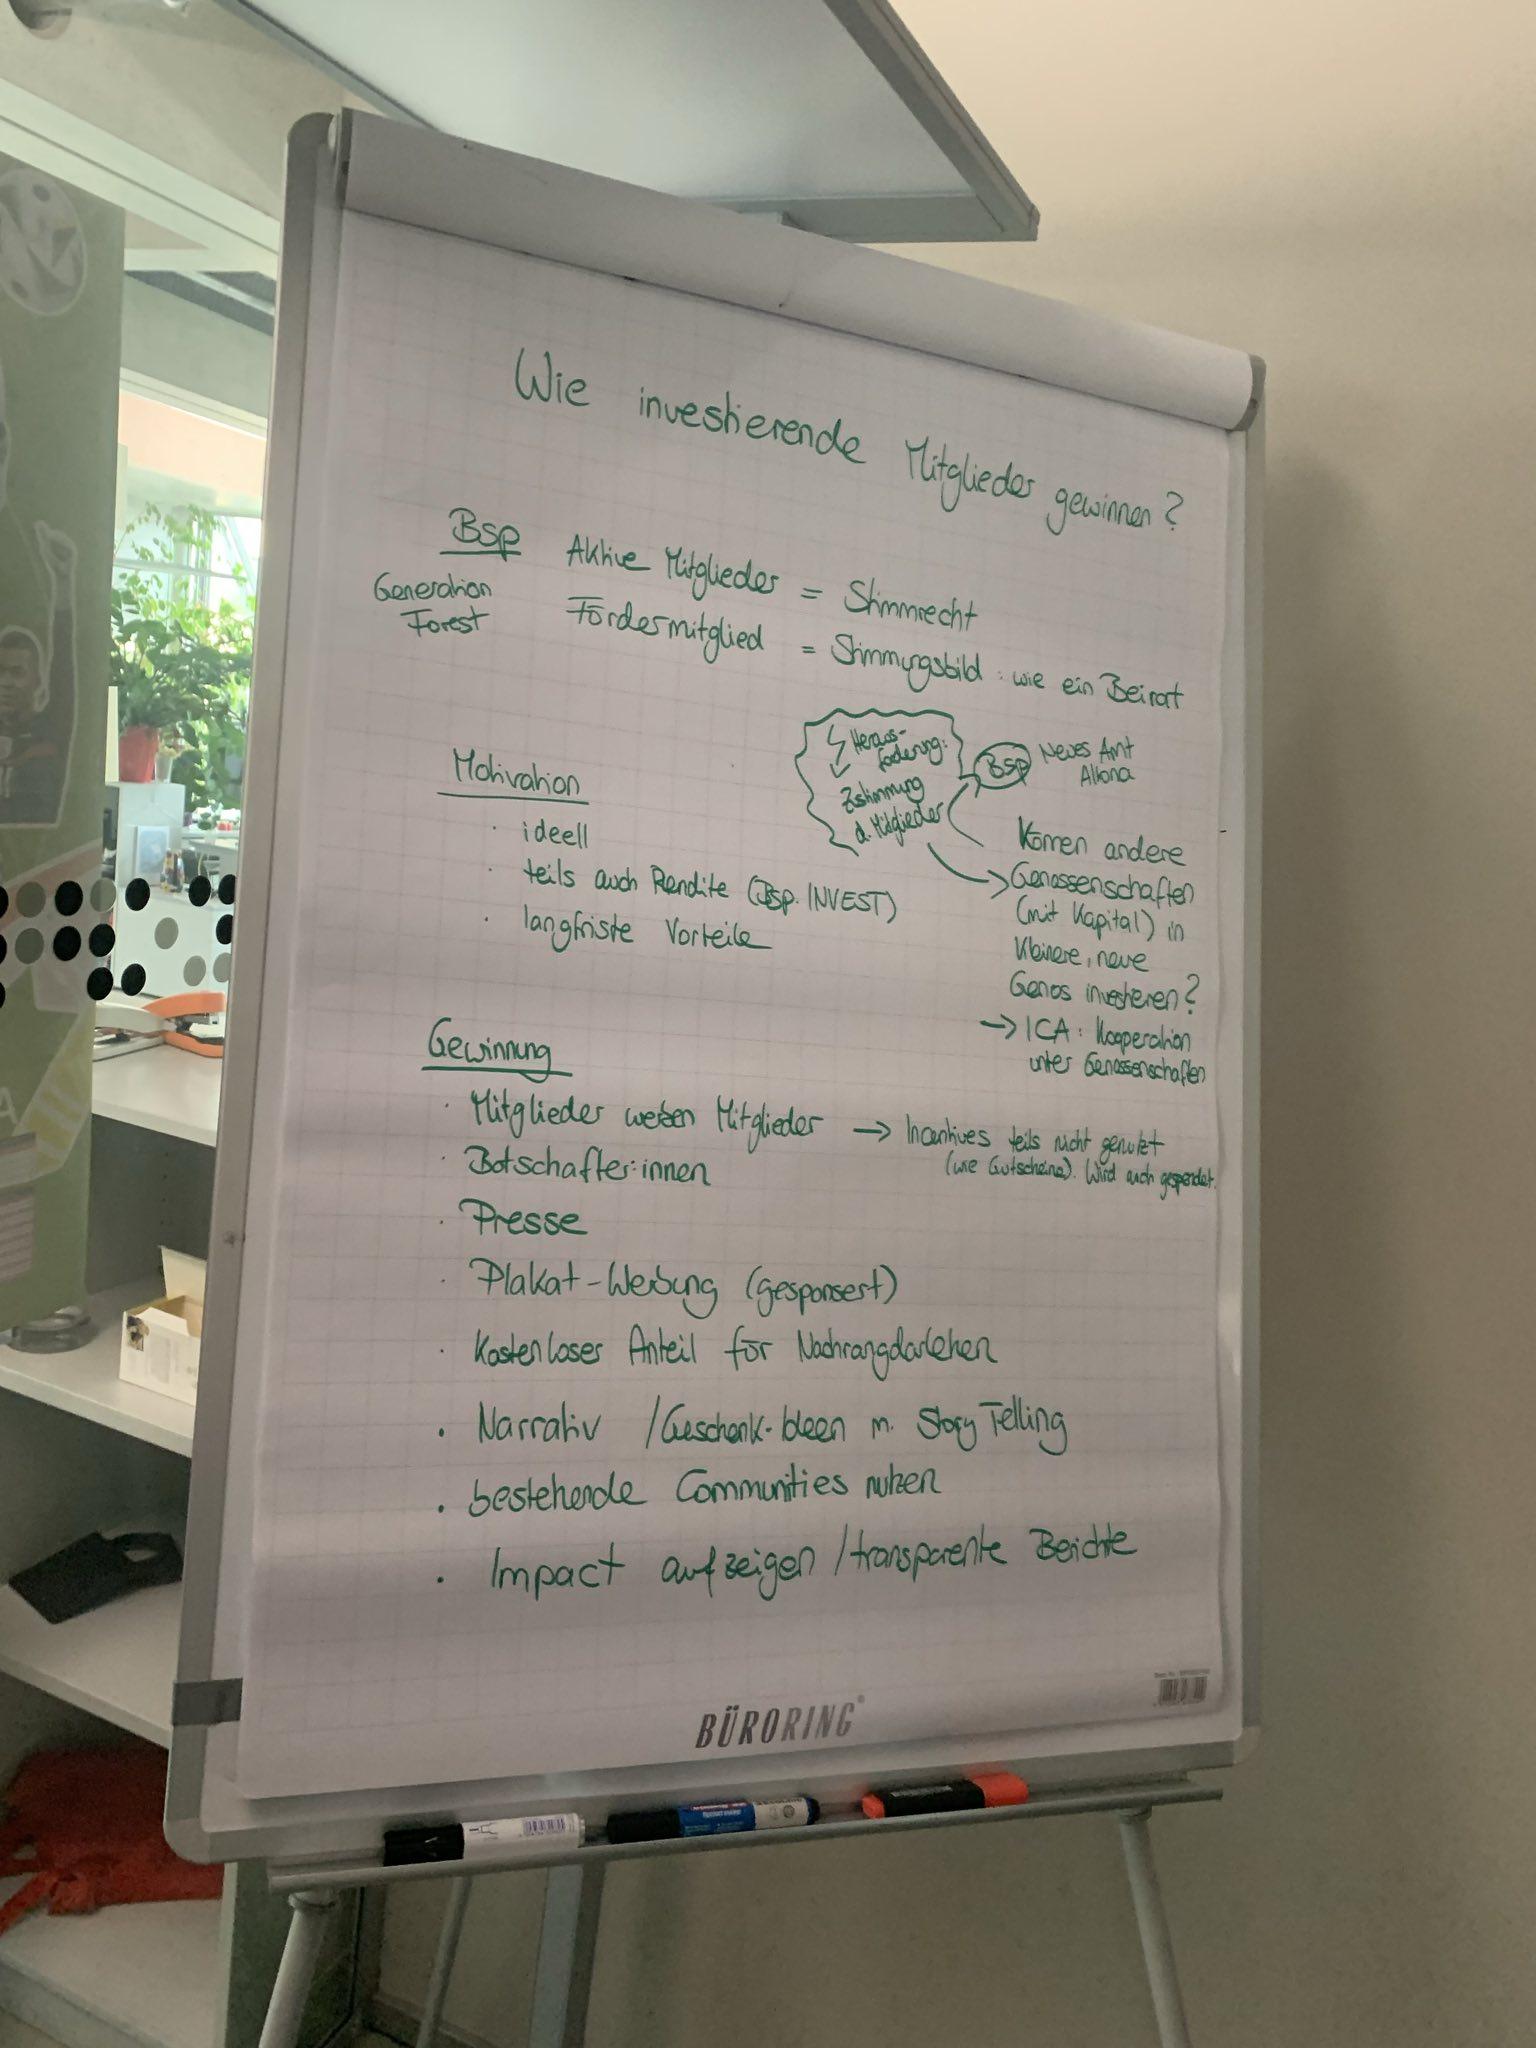 Wie investierende Mitglieder gewinnen?
Bsp Aktive Mitglieder = Stimmrecht
Generation
Forest
Fördermitglied = Stimmungsbild : wie ein Beirat
Heraus-
forderung:
Zustimmung
d. Mitglieder
Bsp Neues Amt
Altona
Können andere
Genossenschaften
(mit Kapital) in
kleinere, neue
Genos investieren?
→ ICA: Kooperation
unter Genossenschaften
Motivation
· ideell
· teils auch Rendite (Bsp. INVEST)
· langfriste Vorteile
Gewinnung
· Mitglieder werben Mitglieder → Incentives teils nicht genutzt
(wie Gutscheine). Wird auch gespendet.
· Botschafter:innen
· Presse
· Plakat-Werbung (gesponsert)
· Kostenloser Anteil für Nachrangdarlehen
· Narrativ / Geschenk-Ideen m. Story Telling
· bestehende Communities nutzen
· Impact aufzeigen / transparente Berichte
BÜRORING®